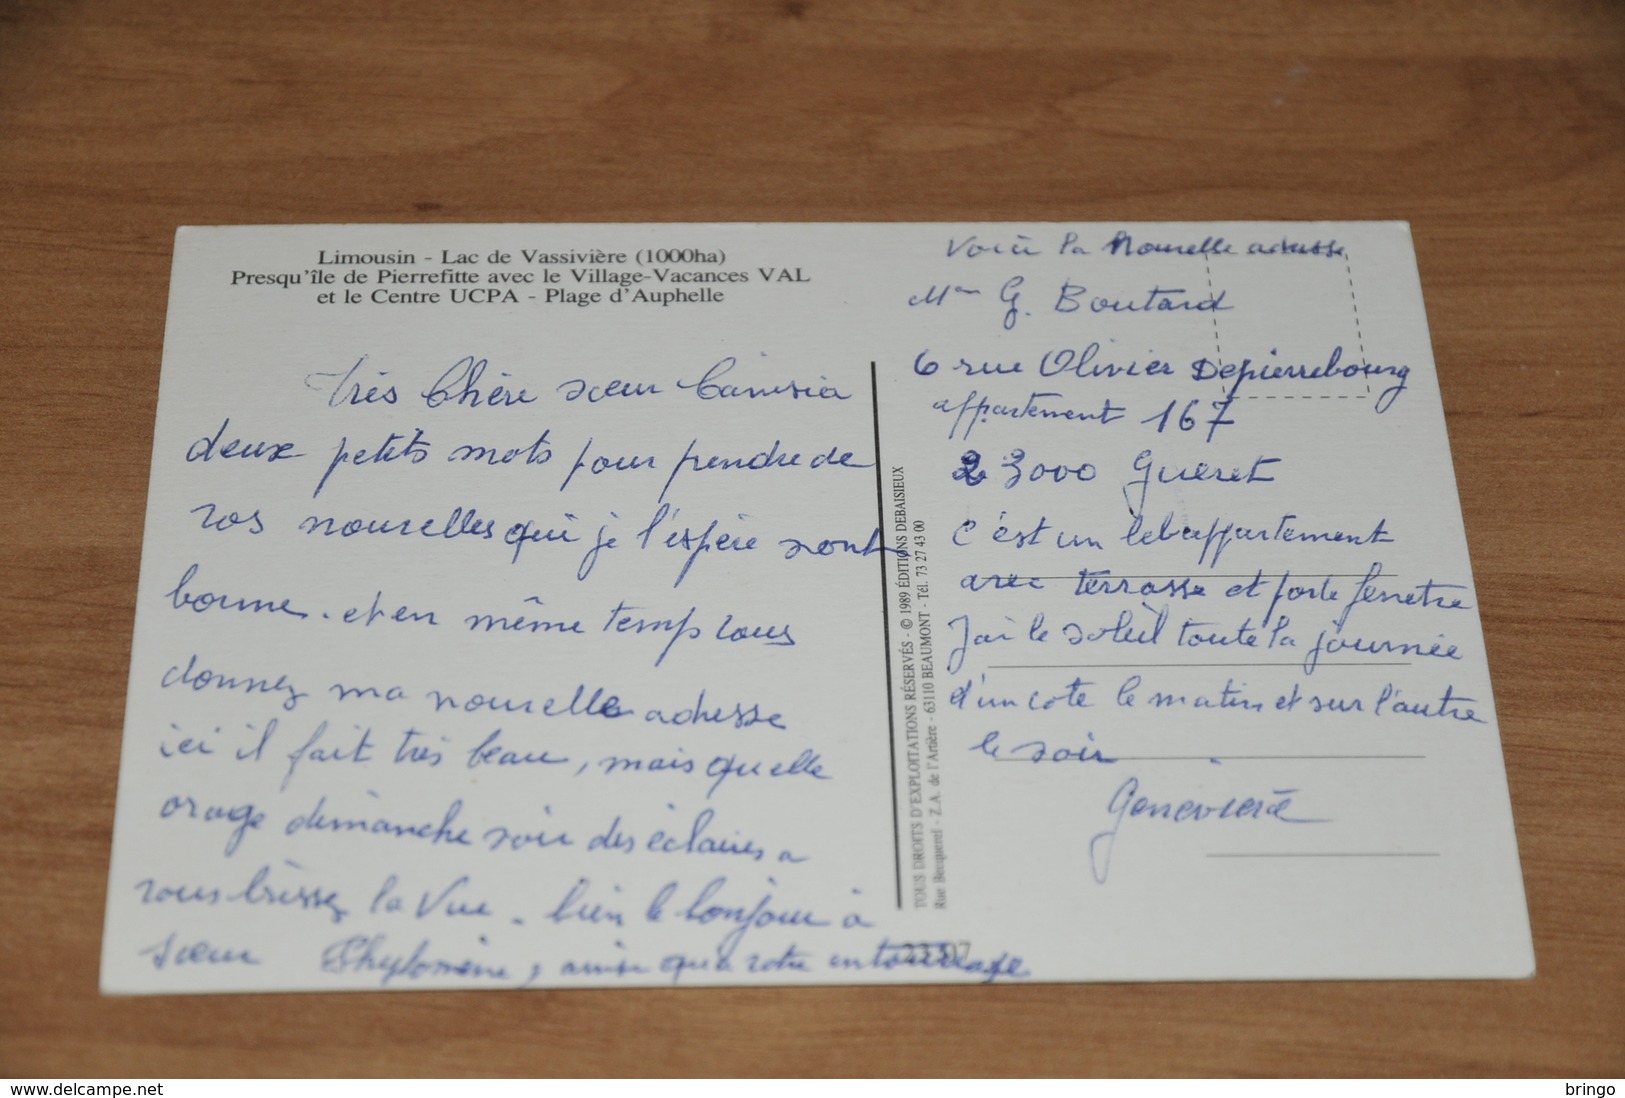 Limousin - Lac de Vassivière (1000ha)
Presqu'île de Pierrefitte avec le Village-Vacances VAL
et le Centre UCPA - Plage d'Auphelle
très Chère sœur
deux petits mots pour prendre de
vos nouvelles qui je l'espère sont
bonne. et en même temp vous
donnez ma nouvelle adresse
ici il fait très beau, mais quelle
orage dimanche soir des éclaires a
vous brissez la Vue. bien le bonjour à
sœur Phylomène, ainsi qu'a votre entourage
TOUS DROITS D'EXPLOITATIONS RÉSERVÉS - © 1989 ÉDITIONS DEBAISIEUX
Rue Becquerel - Z.A. de l'Artière - 63110 BEAUMONT - Tél. 73 27 43 00
Voici la Nouvelle adresse
Mme G. Boutard
6 rue Olivier Depierrebourg
appartement 167
23000 Gueret
c'est un bel appartement
avec terrasse et porte fenetre
J'ai le soleil toute la journée
d'un cote le matin et sur l'autre
le soir
Genevieve
https://www.delcampe.net
bringo